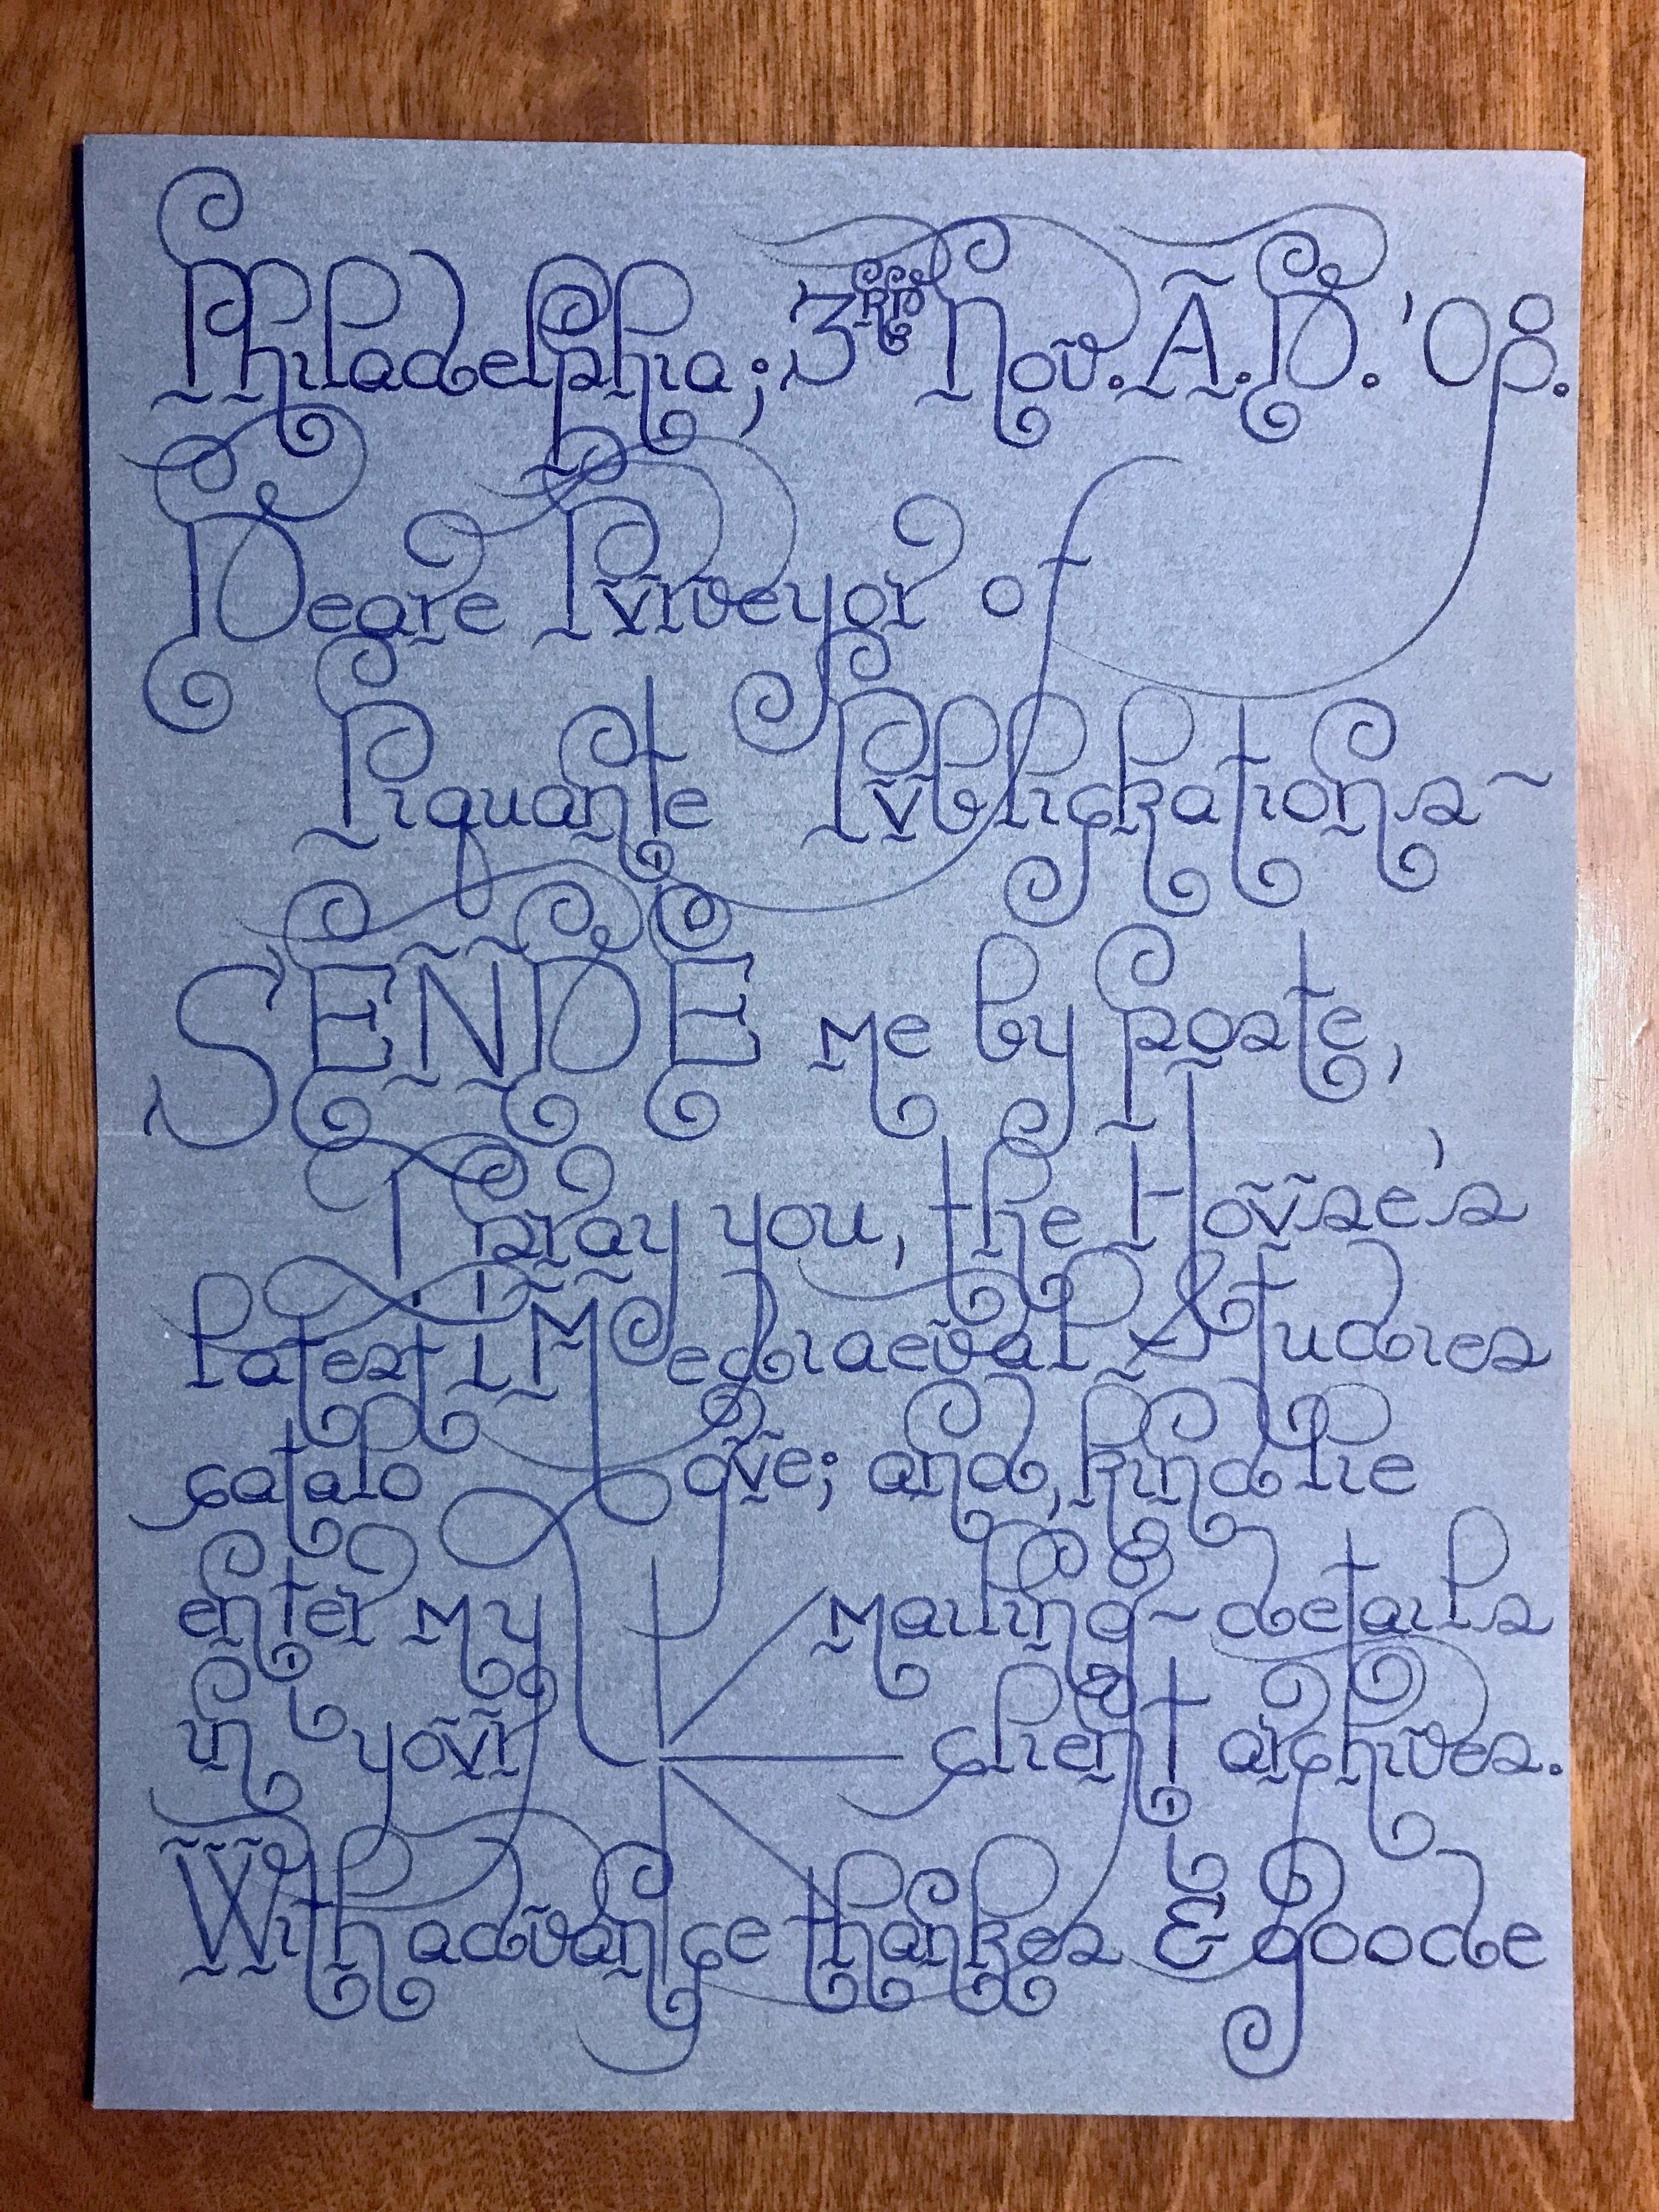 Philadelphia; 3RD Nov. A.D. '08.
Deare Pvrveyor of
Piquante Pvblickations~
SENDE me by poste,
I pray you, the Hovse's
latest Mediaeval Studies
catalogve; and, kindlie
enter my mailing-details
in yovr client archives.
With advance thankes & goode